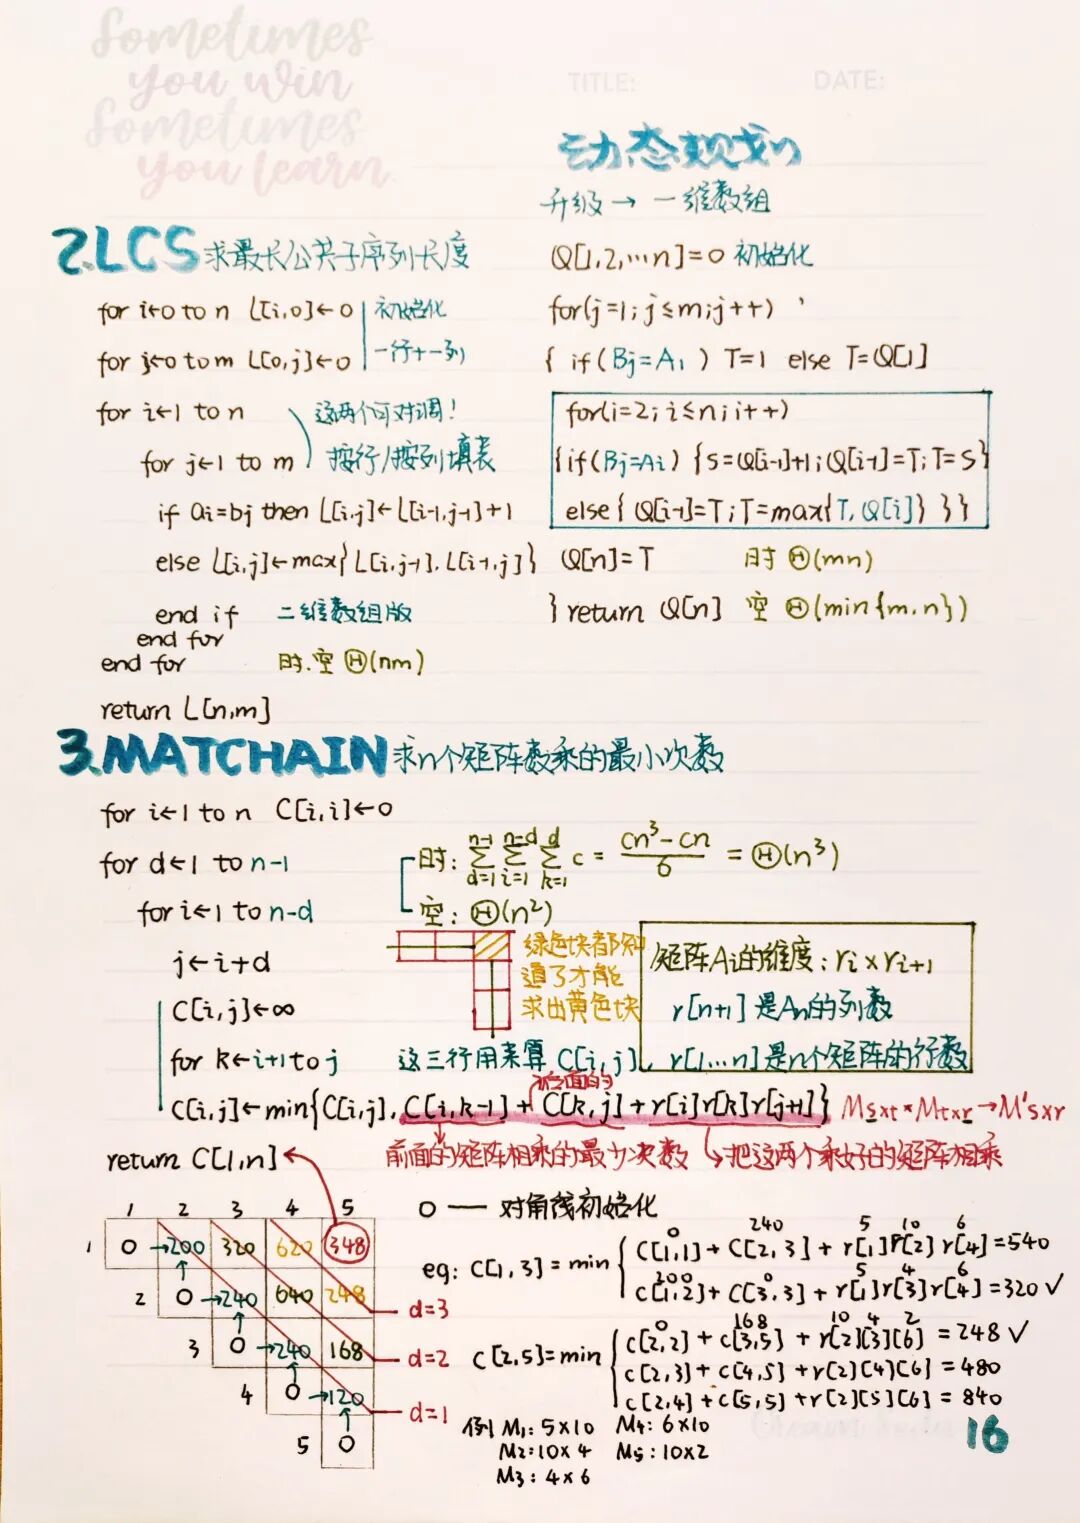 Sometimes
you win
Sometimes
you learn.
TITLE:
DATE:
动态规划
2.LCS 求最长公共子序列长度
for i←0 to n L[i,0]←0 初始化
for j←0 to m L[0,j]←0 一行+一列
for i←1 to n 这两个可对调!
for j←1 to m 按行/按列填表
if ai=bj then L[i,j]←L[i-1,j-1]+1
else L[i,j]←max{L[i,j-1], L[i-1,j]}
end if 二维数组版
end for
end for 时.空 Θ(nm)
return L[n,m]
升级→一维数组
Q[1,2,…n]=0 初始化
for(j=1;j≤m;j++)
{ if(Bj=A1) T=1 else T=Q[1]
for(i=2;i≤n;i++)
{if(Bj=Ai) {S=Q[i-1]+1;Q[i-1]=T;T=S}
else{ Q[i-1]=T;T=max{T,Q[i]} }}
Q[n]=T 时 Θ(mn)
} return Q[n] 空 Θ(min{m,n})
3.MATCHAIN 求n个矩阵数乘的最小次数
for i←1 to n C[i,i]←0
for d←1 to n-1
for i←1 to n-d
j←i+d
C[i,j]←∞
for k←i+1 to j 这三行用来算 C[i,j],
C[i,j]←min{C[i,j], C[i,k-1]+C[k,j]+r[i]r[k]r[j+1]} Ms×t*Mt×r→M's×r
后面的
前面的矩阵相乘的最少次数 把这两个乘好的矩阵相乘
return C[1,n]
时: n-1∑d=1 n-d∑i=1 d∑k=1 c = cn³-cn/6 = Θ(n³)
空: Θ(n²)
绿色块都知
道了才能
求出黄色块
矩阵Ai的维度: ri×ri+1
r[n+1]是An的列数
r[1…n]是n个矩阵的行数
1 2 3 4 5
1 0 200 320 620 348
2 0 240 640 248
3 0 240 168
4 0 120
5 0
d=3
d=2
d=1
0 — 对角线初始化
0 240 5 10 6
eg: C[1,3]=min { C[1,1]+C[2,3]+r[1]r[2]r[4]=540
200 0 5 4 6
C[1,2]+C[3,3]+r[1]r[3]r[4]=320 ✓
0 168 10 4 2
C[2,5]=min { C[2,2]+C[3,5]+r[2][3][6]=248 ✓
C[2,3]+C[4,5]+r[2][4][6]=480
C[2,4]+C[5,5]+r[2][5][6]=840
例 M1: 5×10 M4: 6×10
M2: 10×4 M5: 10×2
M3: 4×6
16